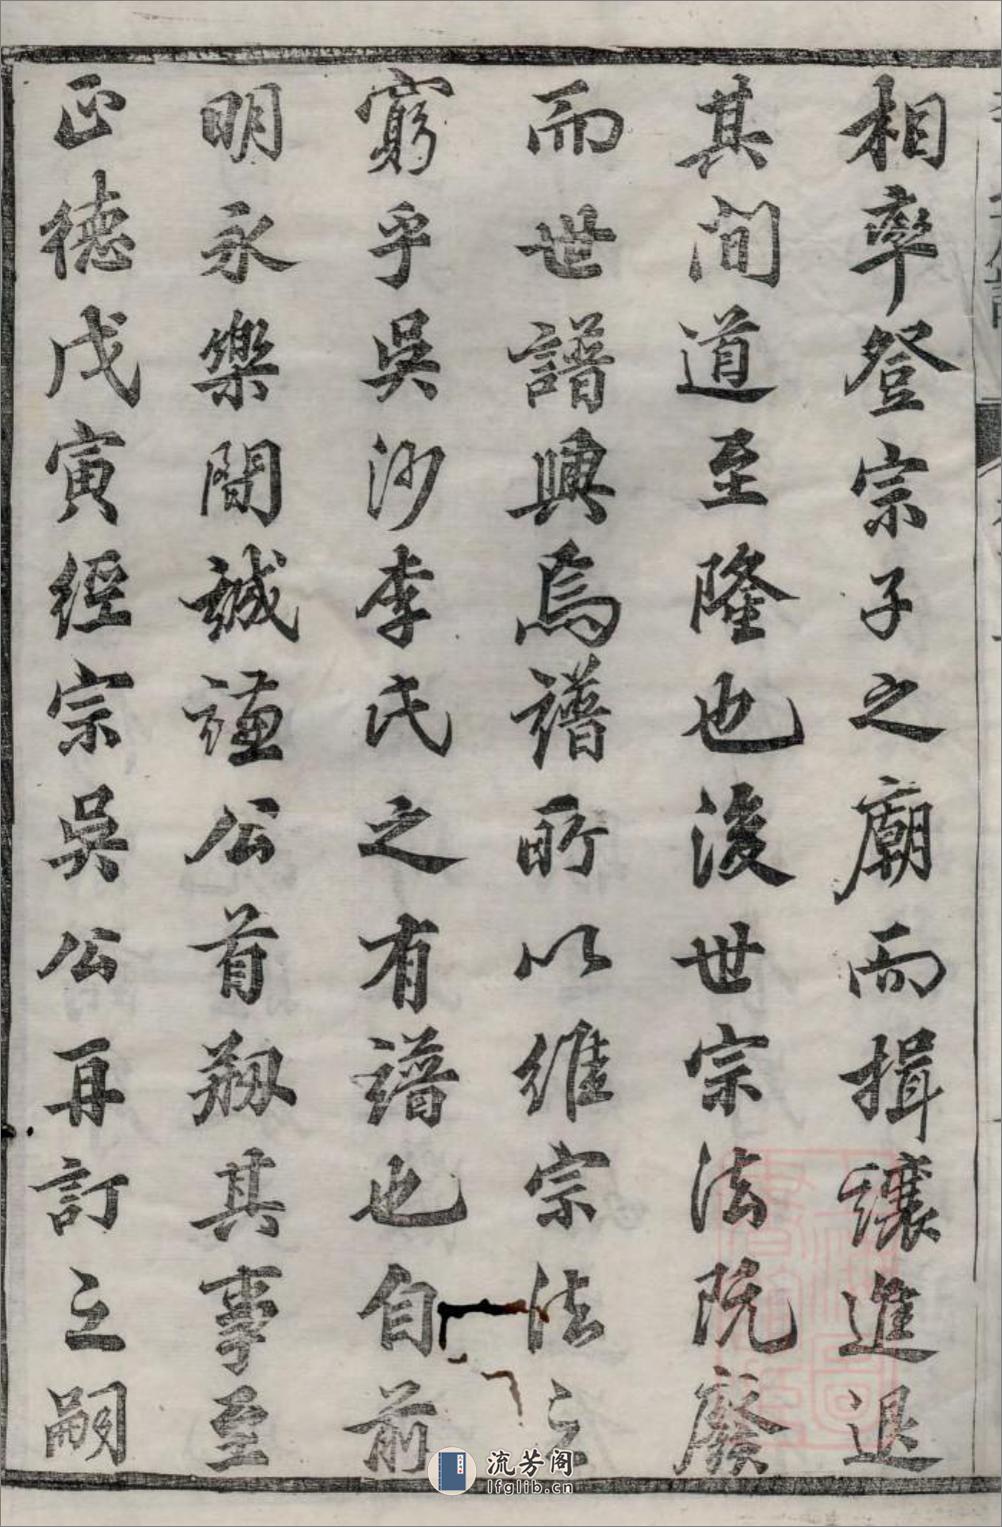 相率登宗子之廟而揖讓進退
其間道至隆也後世宗法既廢
而世譜興焉譜所以維宗法之
窮乎吳沙李氏之有譜也自前
明永樂間誠謹公首剏其事至
正德戊寅經宗吳公再訂之嗣
流芳阁
lfglib.cn